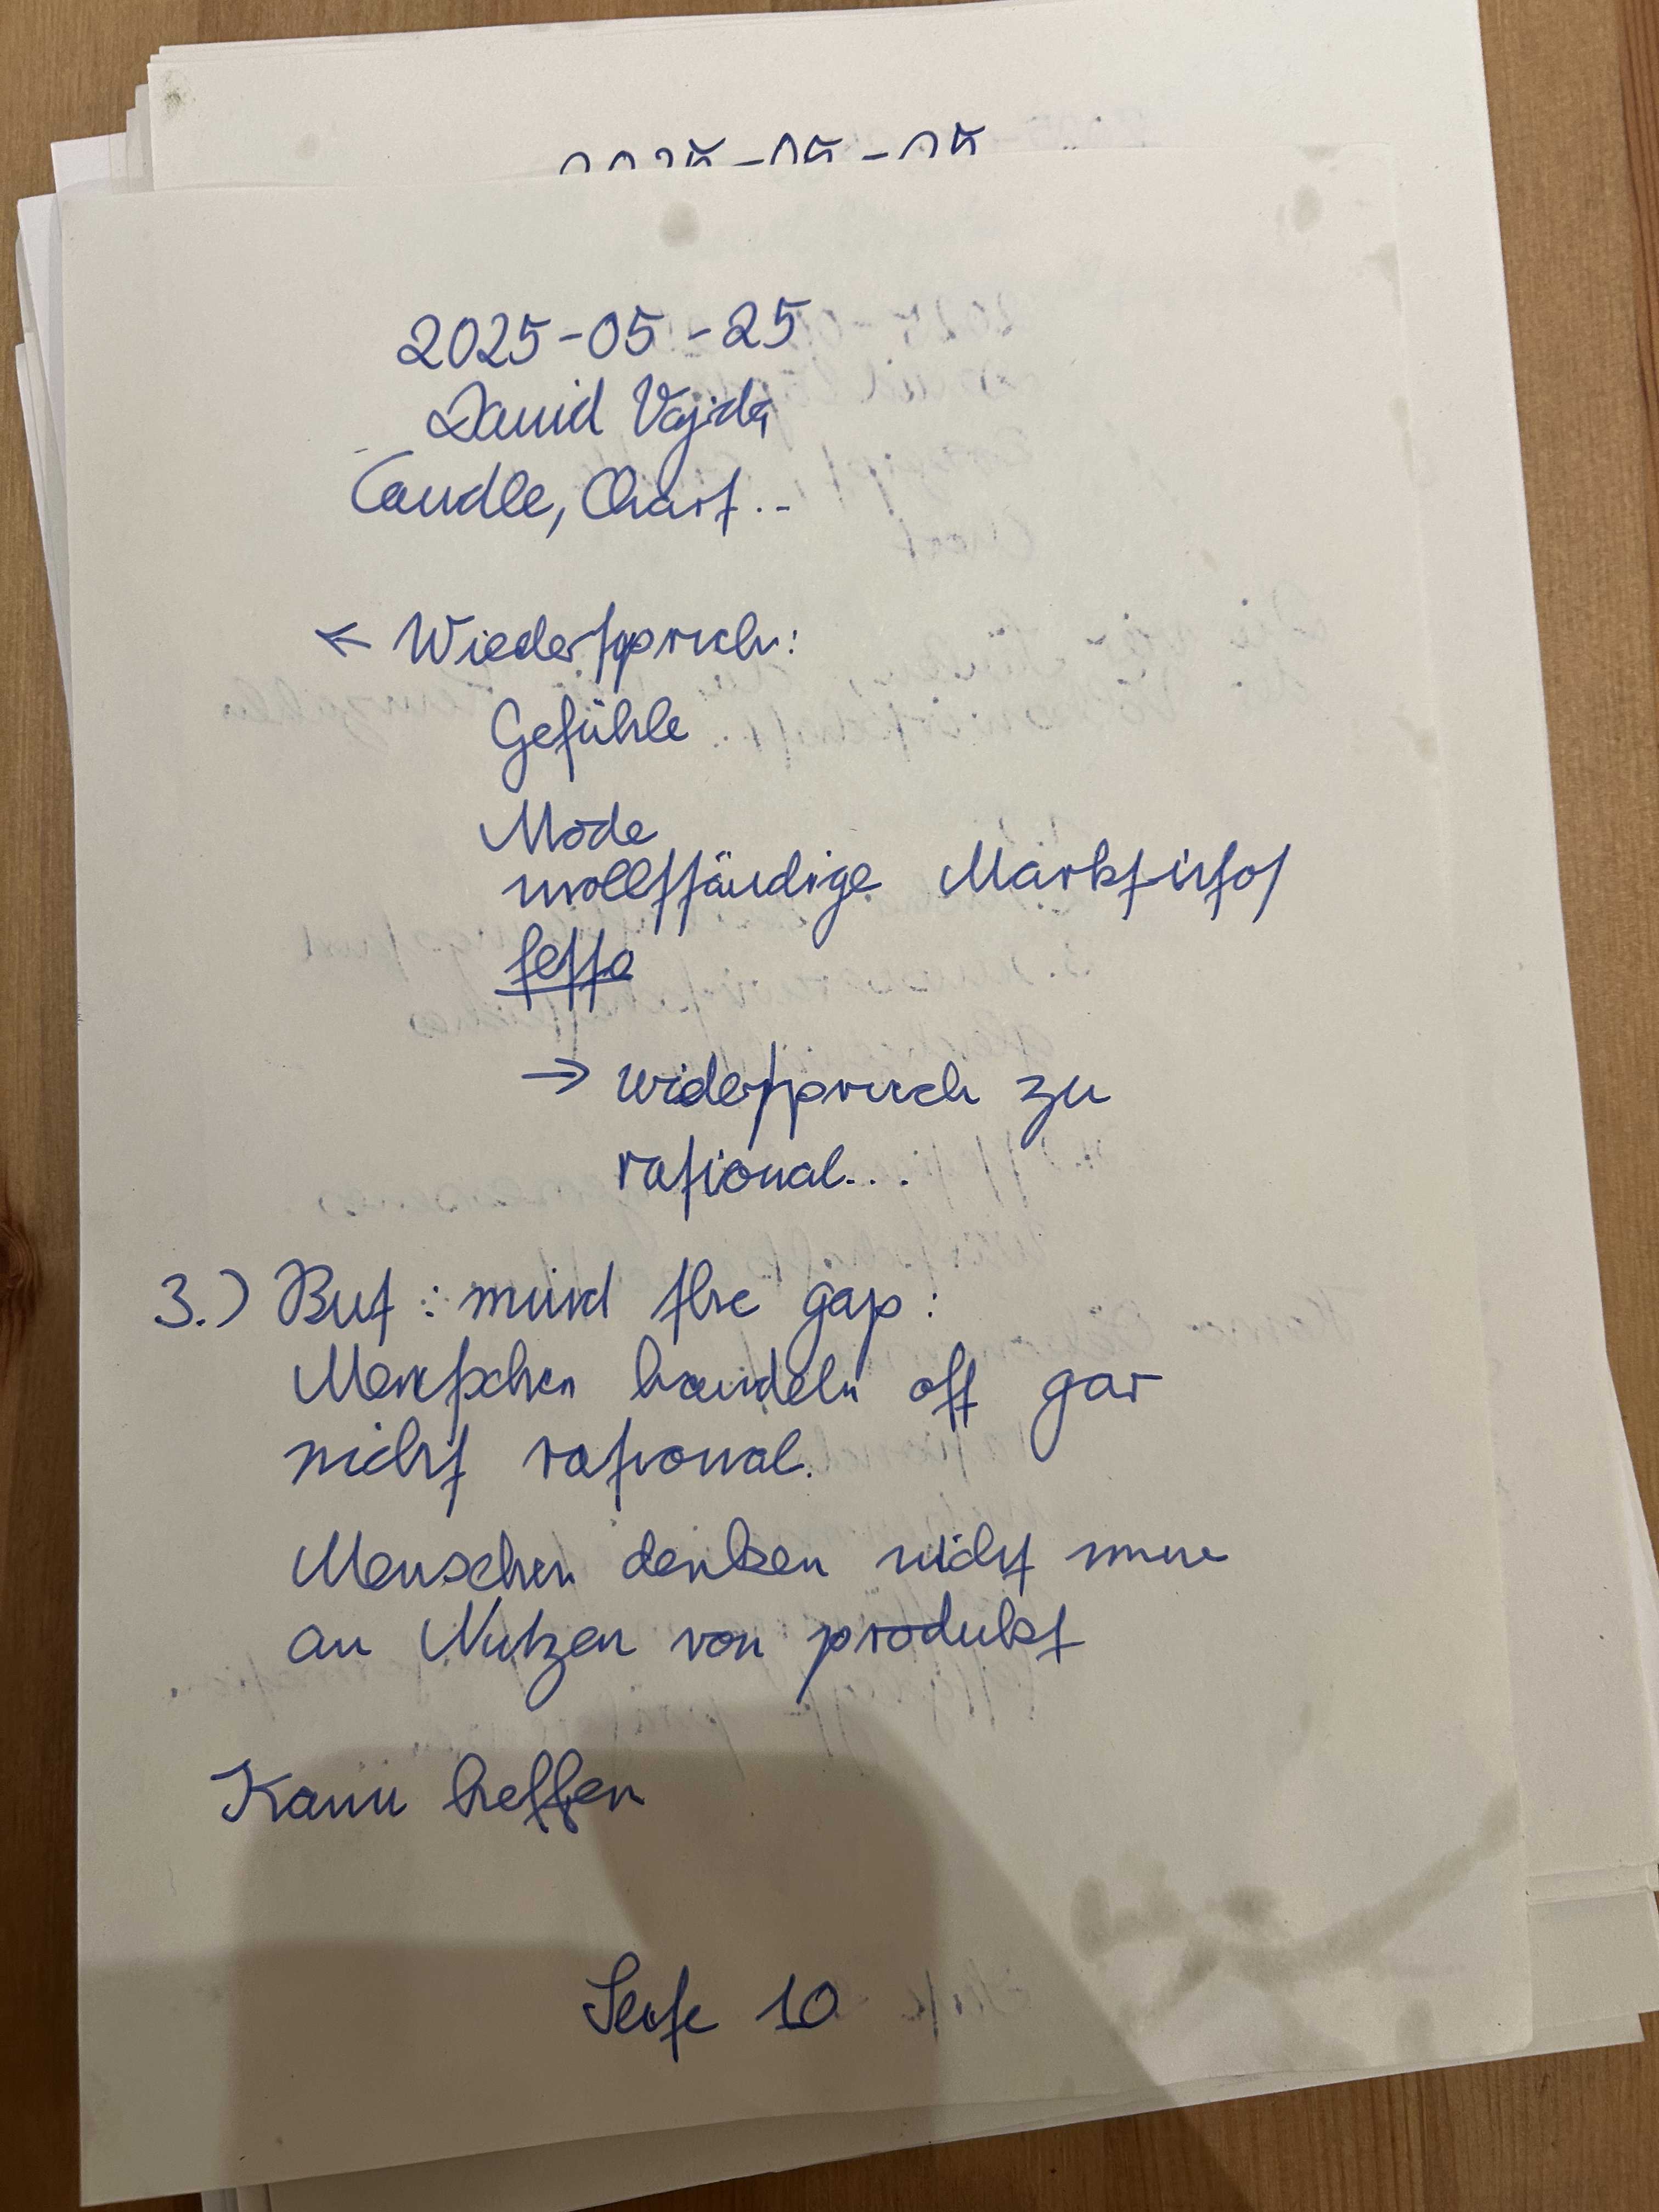 2025-05-25
David Vajda
Candle, Chart..
← Wiederspruch:
Gefühle
Mode
unvollständige Marktinfos
→ widerspruch zu
rational...
3.) But: mind the gap:
Menschen handeln oft gar
nicht rational.
Menschen denken nicht
an Nutzen von produkt
Kann helfen
Seite 10